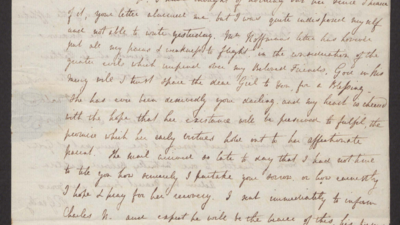 of it, your letter alarmed me but I was quite indisposed myself
and not able to write yesterday. Mr Hoffman's letter has however
put all my pains & weakness to flight, in the consideration of the
greater evils which impend over my beloved Friends. God in his
mercy will I trust spare the dear Girl to you for a Blessing
She has ever been deservedly your darling, and my heart is cheered
with the hope that her existence will be preserved to fulfil the
promises which her early virtues hold out to her affectionate
parent. The mail arrived so late to day that I had not time
to tell you how sincerely I partake your sorrow or how earnestly
I hope & pray for her recovery. I sent immediately to inform
Charles N. and expect he will be the bearer of this